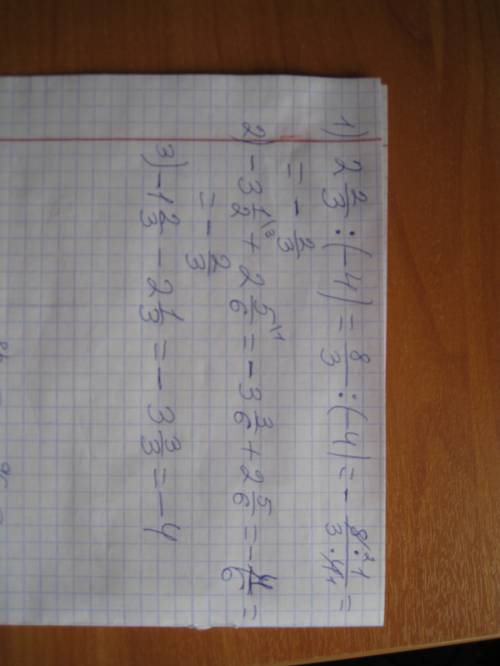 1) 2 2/3 : (-4) = 8/3 : (-4) = - 8²·1/3·4₁ =
= - 2/3
2) -3 1/2\3 + 2 5/6\1 = -3 3/6 + 2 5/6 = - 4/6 =
= - 2/3
3) -1 2/3 - 2 1/3 = - 3 3/3 = -4